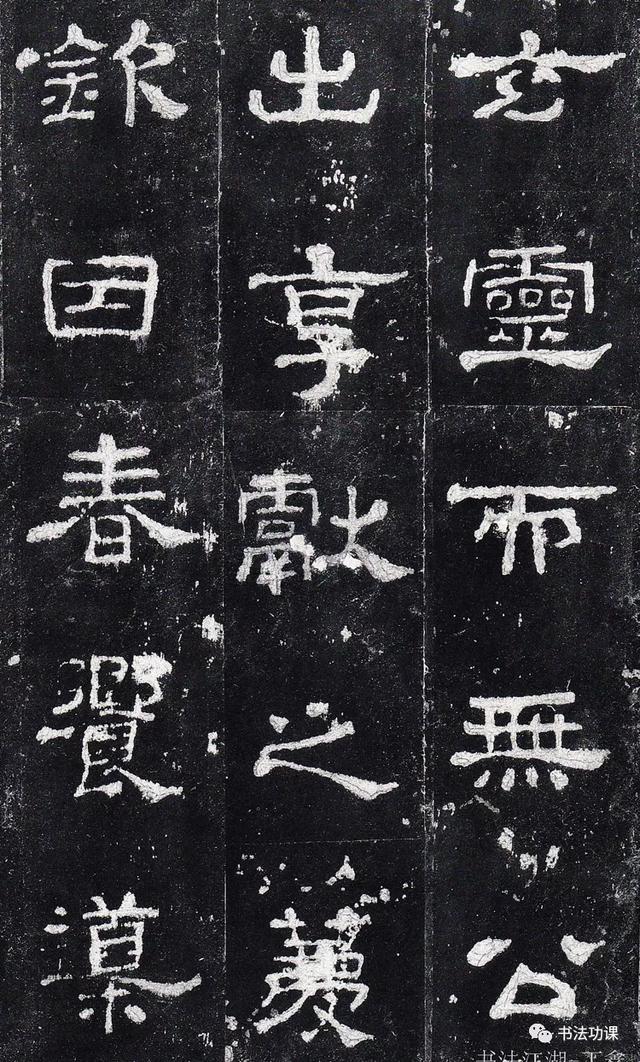 玄靈而無公
出享獻之薦
欽因春饗導
书法功课
书法江湖